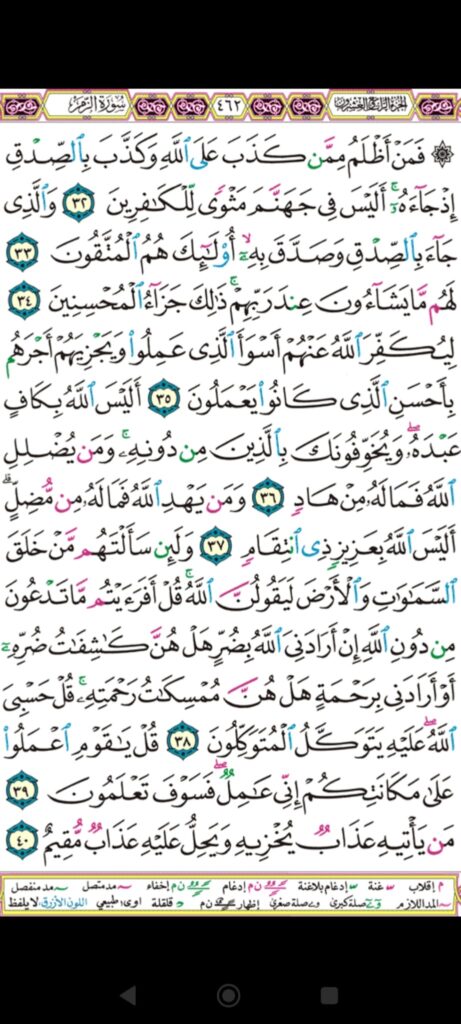 الجزء الرابع والعشرون ٤٦٢ سورة الزمر
۞ فَمَنْ أَظْلَمُ مِمَّن كَذَبَ عَلَى ٱللَّهِ وَكَذَّبَ بِٱلصِّدْقِ
إِذْ جَآءَهُۥٓ ۚ أَلَيْسَ فِى جَهَنَّمَ مَثْوًى لِّلْكَٰفِرِينَ ٣٢ وَٱلَّذِى
جَآءَ بِٱلصِّدْقِ وَصَدَّقَ بِهِۦٓ ۙ أُو۟لَٰٓئِكَ هُمُ ٱلْمُتَّقُونَ ٣٣
لَهُم مَّا يَشَآءُونَ عِندَ رَبِّهِمْ ۚ ذَٰلِكَ جَزَآءُ ٱلْمُحْسِنِينَ ٣٤
لِيُكَفِّرَ ٱللَّهُ عَنْهُمْ أَسْوَأَ ٱلَّذِى عَمِلُوا۟ وَيَجْزِيَهُمْ أَجْرَهُم
بِأَحْسَنِ ٱلَّذِى كَانُوا۟ يَعْمَلُونَ ٣٥ أَلَيْسَ ٱللَّهُ بِكَافٍ
عَبْدَهُۥ ۖ وَيُخَوِّفُونَكَ بِٱلَّذِينَ مِن دُونِهِۦ ۚ وَمَن يُضْلِلِ
ٱللَّهُ فَمَا لَهُۥ مِنْ هَادٍ ٣٦ وَمَن يَهْدِ ٱللَّهُ فَمَا لَهُۥ مِن مُّضِلٍّ ۗ
أَلَيْسَ ٱللَّهُ بِعَزِيزٍ ذِى ٱنتِقَامٍ ٣٧ وَلَئِن سَأَلْتَهُم مَّنْ خَلَقَ
ٱلسَّمَٰوَٰتِ وَٱلْأَرْضَ لَيَقُولُنَّ ٱللَّهُ ۚ قُلْ أَفَرَءَيْتُم مَّا تَدْعُونَ
مِن دُونِ ٱللَّهِ إِنْ أَرَادَنِىَ ٱللَّهُ بِضُرٍّ هَلْ هُنَّ كَٰشِفَٰتُ ضُرِّهِۦٓ
أَوْ أَرَادَنِى بِرَحْمَةٍ هَلْ هُنَّ مُمْسِكَٰتُ رَحْمَتِهِۦ ۚ قُلْ حَسْبِىَ
ٱللَّهُ ۖ عَلَيْهِ يَتَوَكَّلُ ٱلْمُتَوَكِّلُونَ ٣٨ قُلْ يَٰقَوْمِ ٱعْمَلُوا۟
عَلَىٰ مَكَانَتِكُمْ إِنِّى عَٰمِلٌ ۖ فَسَوْفَ تَعْلَمُونَ ٣٩
مَن يَأْتِيهِ عَذَابٌ يُخْزِيهِ وَيَحِلُّ عَلَيْهِ عَذَابٌ مُّقِيمٌ ٤٠
م إقلاب غنة إدغام بلاغنة ن م إدغام ن م إخفاء مد متصل مد منفصل
المد اللازم صلة كبرى صلة صغرى إظهار ن م قلقلة اوى: طبيعي اللون الأزرق: لا يلفظ